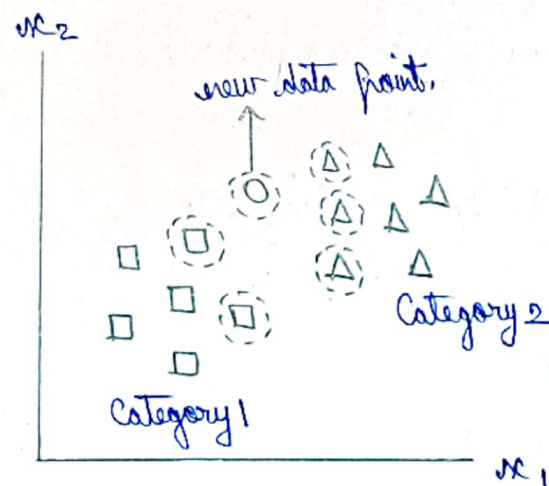 x2
new data point.
Category 2
Category 1
x1